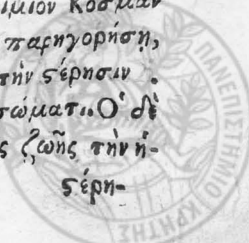 ίμιον Κοσμᾶν
παρηγορήση,
τὴν ϛέρησιν .
τώματι. Ὁ δὲ
ς ζωῆς τὴν ἡ-
ϛέρη-
ΠΑΝΕΠΙΣΤΗΜΙΟ ΚΡΗΤΗΣ